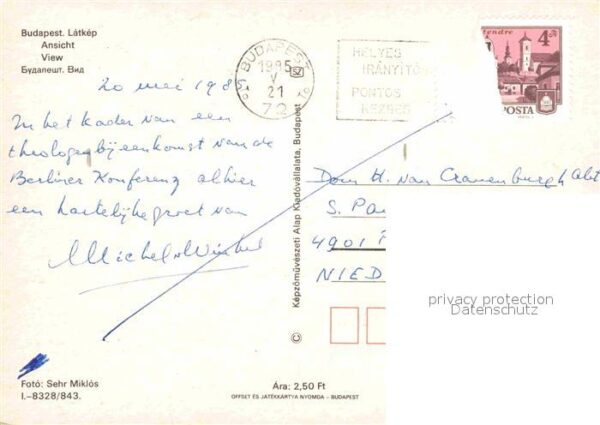 Budapest. Látkép
Ansicht
View
Будапешт. Вид
BUDAPEST
1985
V
21
72
HELYES
IRÁNYÍTÓ
PONTOS
KÉZBES
tendre
4 Ft
POSTA
20 mei 1985
In het kader van een
theologenbijeenkomst van de
Berliner Konferenz alhier
een hartelijke groet van
Michel v Winkel
Dom H. van Cranenburgh Abt
S. Pa
4901
NIED
Képzőművészeti Alap Kiadóvállalata, Budapest
©
privacy protection
Datenschutz
Fotó: Sehr Miklós
I.–8328/843.
Ára: 2,50 Ft
OFFSET ÉS JÁTÉKKÁRTYA NYOMDA – BUDAPEST